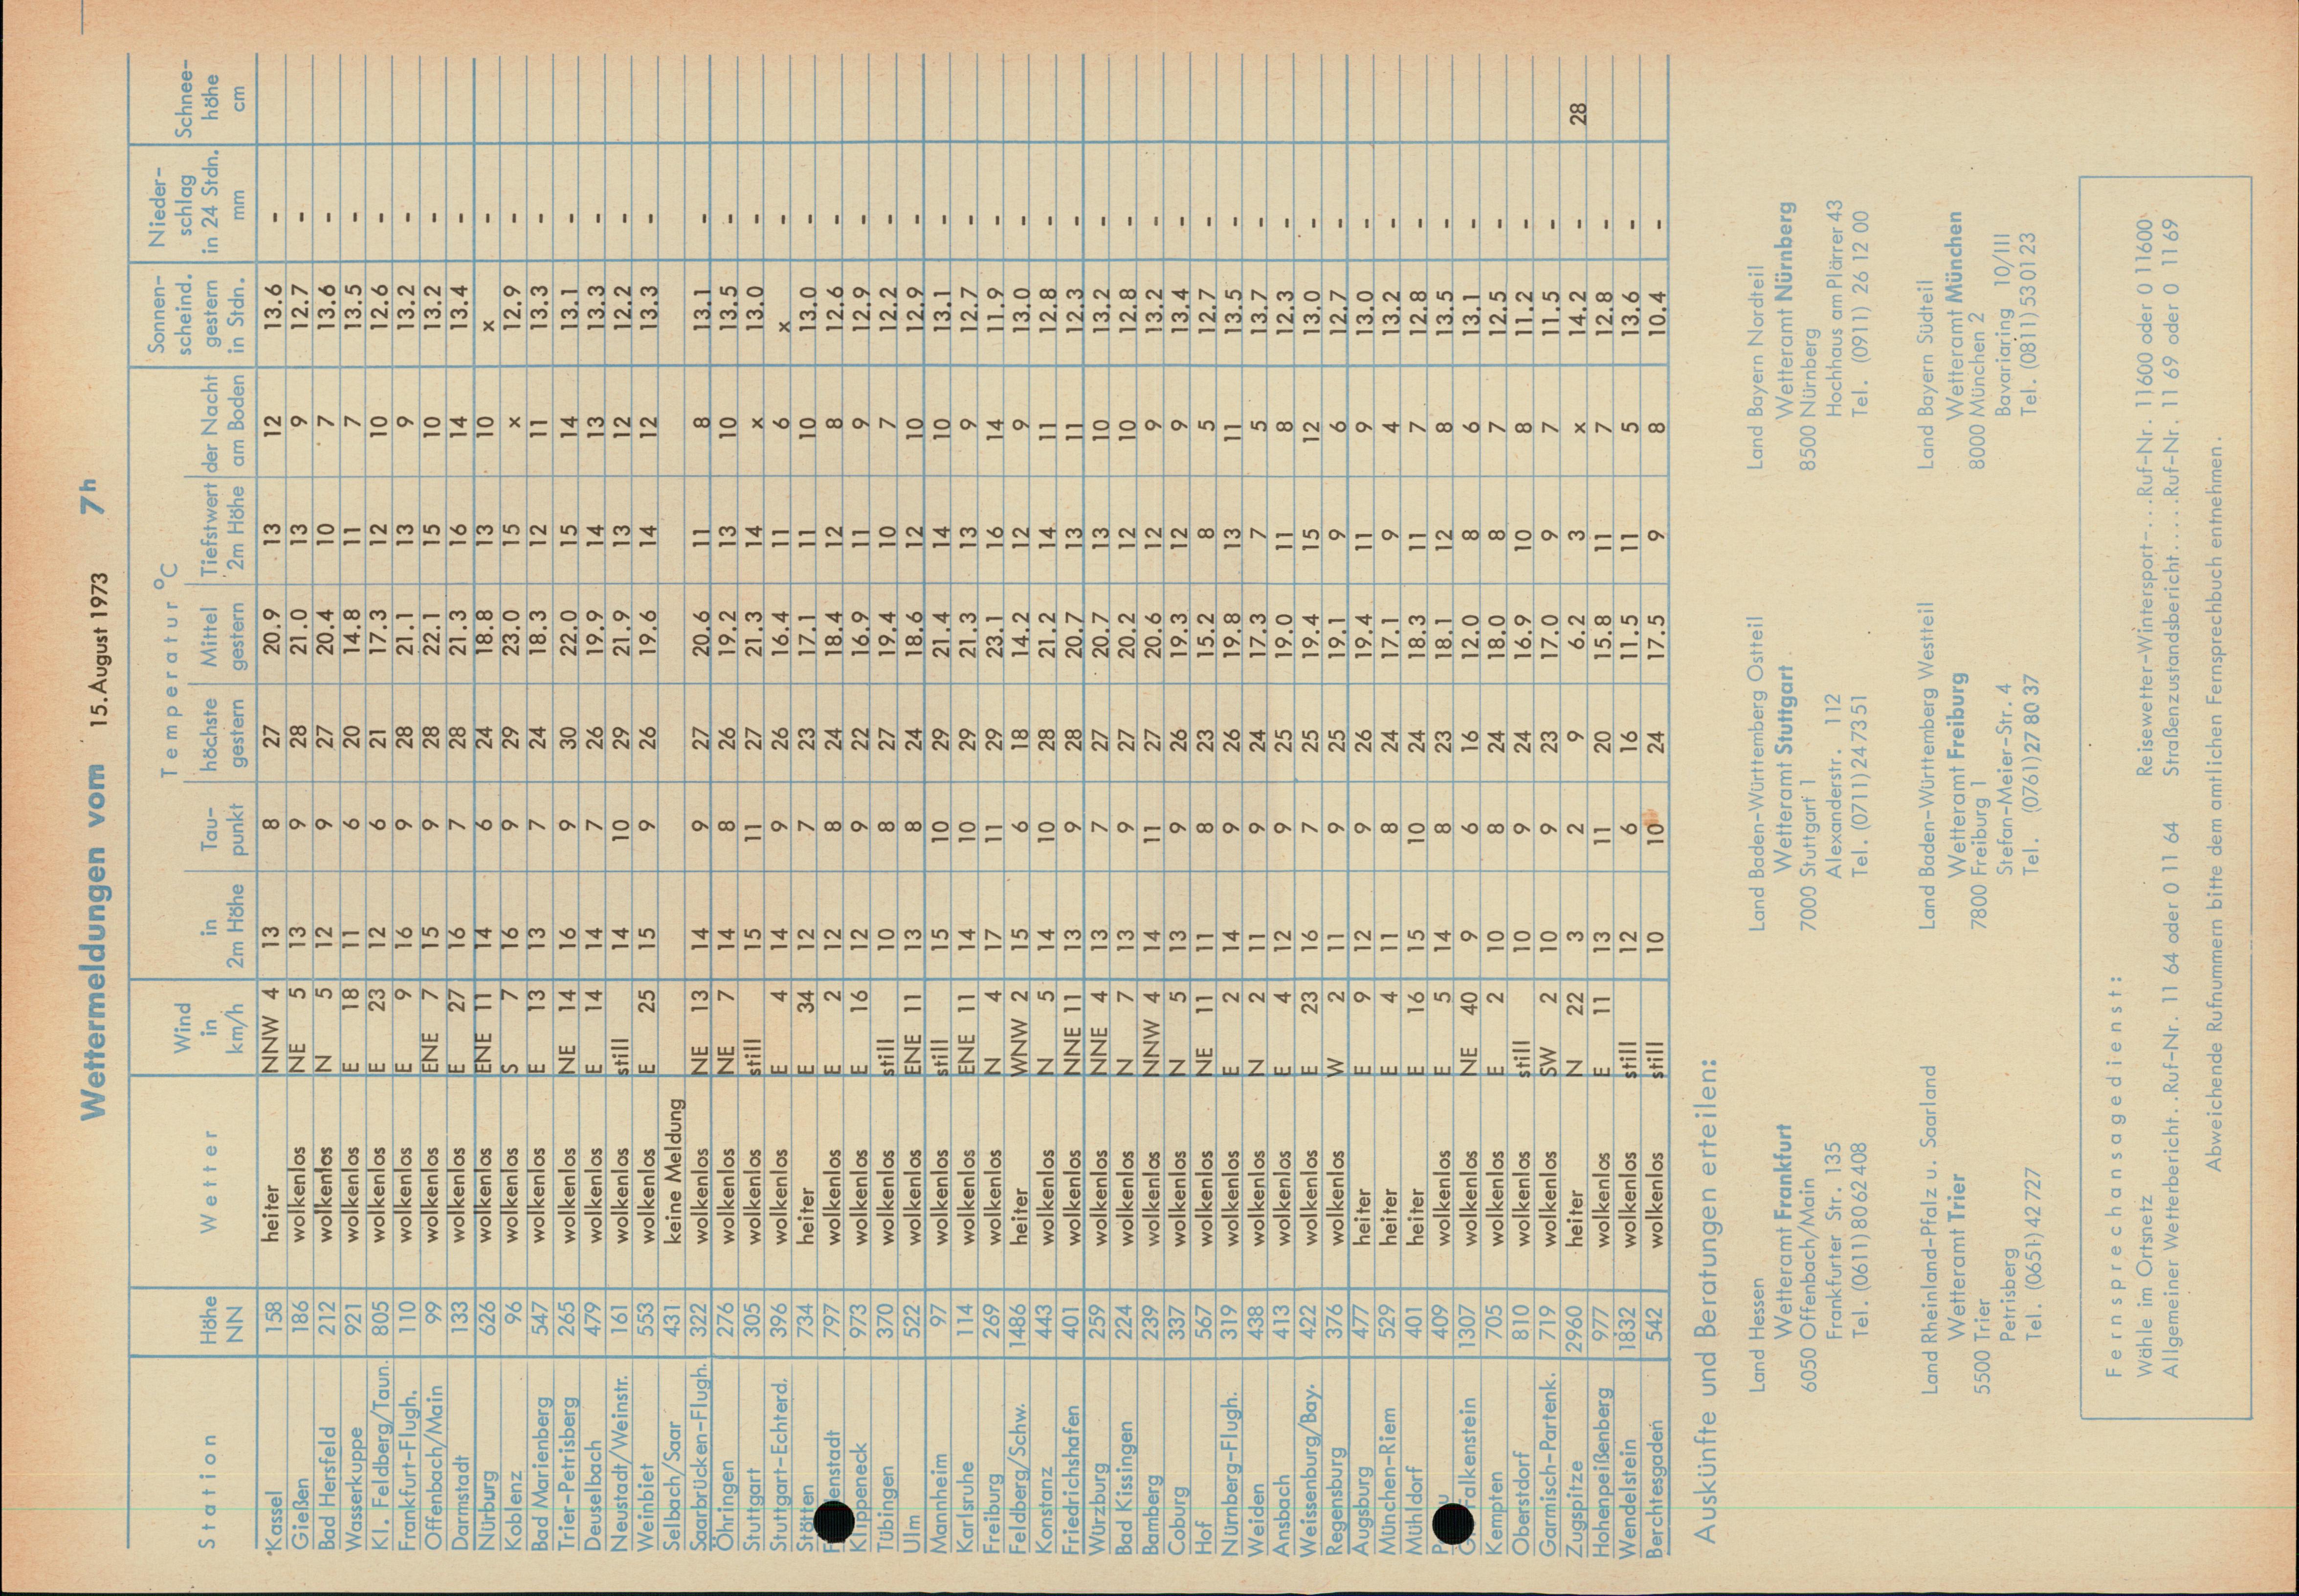 Wettermeldungen vom 15.August 1973 7h
Station Höhe NN Wetter Wind in km/h Temperatur °C in 2m Höhe Tau-punkt höchste gestern Mittel gestern Tiefstwert der Nacht 2m Höhe am Boden Sonnen-scheind. gestern in Stdn. Nieder-schlag in 24 Stdn. mm Schnee-höhe cm
Kassel 158 heiter NNW 4 13 8 27 20.9 13 12 13.6 -
Gießen 186 wolkenlos NE 5 13 9 28 21.0 13 9 12.7 -
Bad Hersfeld 212 wolkenlos N 5 12 9 27 20.4 10 7 13.6 -
Wasserkuppe 921 wolkenlos E 18 11 6 20 14.8 11 7 13.5 -
Kl. Feldberg/Taun. 805 wolkenlos E 23 12 6 21 17.3 12 10 12.6 -
Frankfurt-Flugh. 110 wolkenlos E 9 16 9 28 21.1 13 9 13.2 -
Offenbach/Main 99 wolkenlos ENE 7 15 9 28 22.1 15 10 13.2 -
Darmstadt 133 wolkenlos E 27 16 7 28 21.3 16 14 13.4 -
Nürburg 626 wolkenlos ENE 11 14 6 24 18.8 13 10 x -
Koblenz 96 wolkenlos S 7 16 9 29 23.0 15 x 12.9 -
Bad Marienberg 547 wolkenlos E 13 13 7 24 18.3 12 11 13.3 -
Trier-Petrisberg 265 wolkenlos NE 14 16 9 30 22.0 15 14 13.1 -
Deuselbach 479 wolkenlos E 14 14 7 26 19.9 14 13 13.3 -
Neustadt/Weinstr. 161 wolkenlos still 14 10 29 21.9 13 12 12.2 -
Weinbiet 553 wolkenlos E 25 15 9 26 19.6 14 12 13.3 -
Selbach/Saar 431 keine Meldung
Saarbrücken-Flugh. 322 wolkenlos NE 13 14 9 27 20.6 11 8 13.1 -
Öhringen 276 wolkenlos NE 7 14 8 26 19.2 13 10 13.5 -
Stuttgart 305 wolkenlos still 15 11 27 21.3 14 x 13.0 -
Stuttgart-Echterd. 396 wolkenlos E 4 14 9 26 16.4 11 6 x -
Stötten 734 heiter E 34 12 7 23 17.1 11 10 13.0 -
enstadt 797 wolkenlos E 2 12 8 24 18.4 12 8 12.6 -
Klippeneck 973 wolkenlos E 16 12 9 22 16.9 11 9 12.9 -
Tübingen 370 wolkenlos still 10 8 27 19.4 10 7 12.2 -
Ulm 522 wolkenlos ENE 11 13 8 24 18.6 12 10 12.9 -
Mannheim 97 wolkenlos still 15 10 29 21.4 14 10 13.1 -
Karlsruhe 114 wolkenlos ENE 11 14 10 29 21.3 13 9 12.7 -
Freiburg 269 wolkenlos N 4 17 11 29 23.1 16 14 11.9 -
Feldberg/Schw. 1486 heiter WNW 2 15 6 18 14.2 12 9 13.0 -
Konstanz 443 wolkenlos N 5 14 10 28 21.2 14 11 12.8 -
Friedrichshafen 401 wolkenlos NNE 11 13 9 28 20.7 13 11 12.3 -
Würzburg 259 wolkenlos NNE 4 13 7 27 20.7 13 10 13.2 -
Bad Kissingen 224 wolkenlos N 7 13 9 27 20.2 12 10 12.8 -
Bamberg 239 wolkenlos NNW 4 14 11 27 20.6 12 9 13.2 -
Coburg 337 wolkenlos N 5 13 9 26 19.3 12 9 13.4 -
Hof 567 wolkenlos NE 11 11 8 23 15.2 8 5 12.7 -
Nürnberg-Flugh. 319 wolkenlos E 2 14 9 26 19.8 13 11 13.5 -
Weiden 438 wolkenlos N 2 11 9 24 17.3 7 5 13.7 -
Ansbach 413 wolkenlos E 4 12 9 25 19.0 11 8 12.3 -
Weissenburg/Bay. 422 wolkenlos E 23 16 7 25 19.4 15 12 13.0 -
Regensburg 376 wolkenlos W 2 11 9 25 19.1 9 6 12.7 -
Augsburg 477 heiter E 9 12 9 26 19.4 11 9 13.0 -
München-Riem 529 heiter E 4 11 8 24 17.1 9 4 13.2 -
Mühldorf 401 heiter E 16 15 10 24 18.3 11 7 12.8 -
409 wolkenlos E 5 14 8 23 18.1 12 8 13.5 -
Falkenstein 1307 wolkenlos NE 40 9 6 16 12.0 8 6 13.1 -
Kempten 705 wolkenlos E 2 10 8 24 18.0 8 7 12.5 -
Oberstdorf 810 wolkenlos still 10 9 24 16.9 10 8 11.2 -
Garmisch-Partenk. 719 wolkenlos SW 2 10 9 23 17.0 9 7 11.5 -
Zugspitze 2960 heiter N 22 3 2 9 6.2 3 x 14.2 - 28
Hohenpeißenberg 977 wolkenlos E 11 13 11 20 15.8 11 7 12.8 -
Wendelstein 1832 wolkenlos still 12 6 16 11.5 11 5 13.6 -
Berchtesgaden 542 wolkenlos still 10 10 24 17.5 9 8 10.4 -
Auskünfte und Beratungen erteilen:
Land Hessen
Wetteramt Frankfurt
6050 Offenbach/Main
Frankfurter Str. 135
Tel. (0611) 80 62 408
Land Baden-Württemberg Ostteil
Wetteramt Stuttgart
7000 Stuttgart 1
Alexanderstr. 112
Tel. (0711) 24 73 51
Land Bayern Nordteil
Wetteramt Nürnberg
8500 Nürnberg
Hochhaus am Plärrer 43
Tel. (0911) 26 12 00
Land Rheinland-Pfalz u. Saarland
Wetteramt Trier
5500 Trier
Petrisberg
Tel. (0651) 42 727
Land Baden-Württemberg Westteil
Wetteramt Freiburg
7800 Freiburg 1
Stefan-Meier-Str. 4
Tel. (0761) 27 80 37
Land Bayern Südteil
Wetteramt München
8000 München 2
Bavariaring 10/III
Tel. (0811) 53 01 23
Fernsprechansagedienst:
Wähle im Ortsnetz Reisewetter-Wintersport-...Ruf-Nr. 11600 oder 0 11600
Allgemeiner Wetterbericht..Ruf-Nr. 11 64 oder 0 11 64 Straßenzustandsbericht....Ruf-Nr. 11 69 oder 0 11 69
Abweichende Rufnummern bitte dem amtlichen Fernsprechbuch entnehmen.